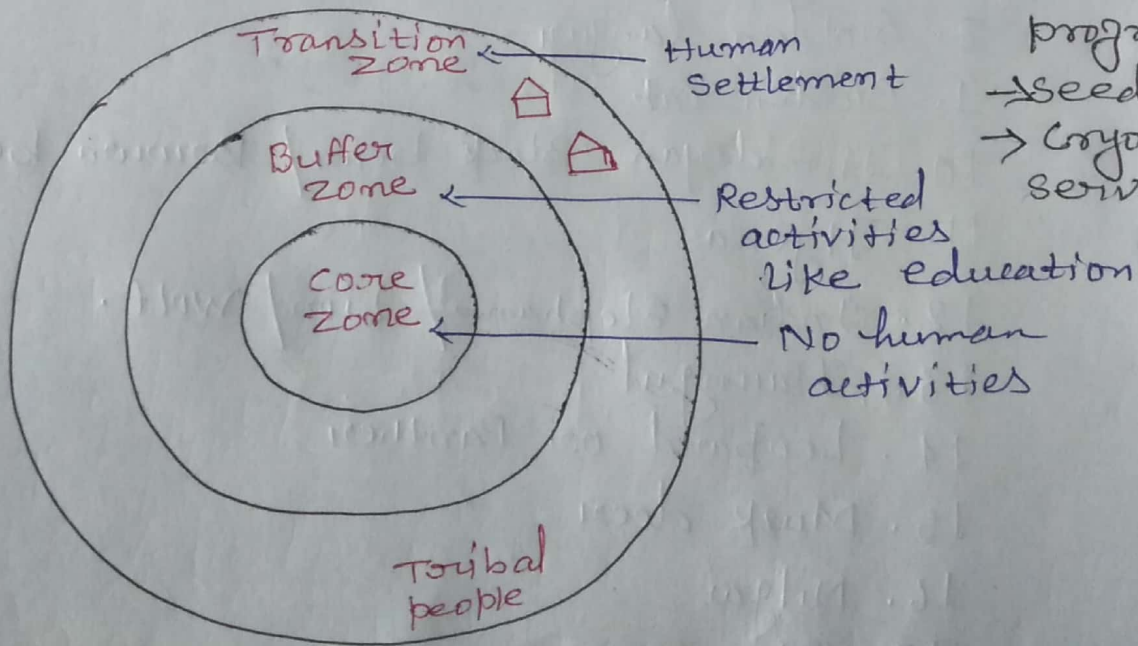 Transition
zone
Human
Settlement
Buffer
zone
Restricted
activities
like education
Core
zone
No human
activities
Toribal
people
→seed